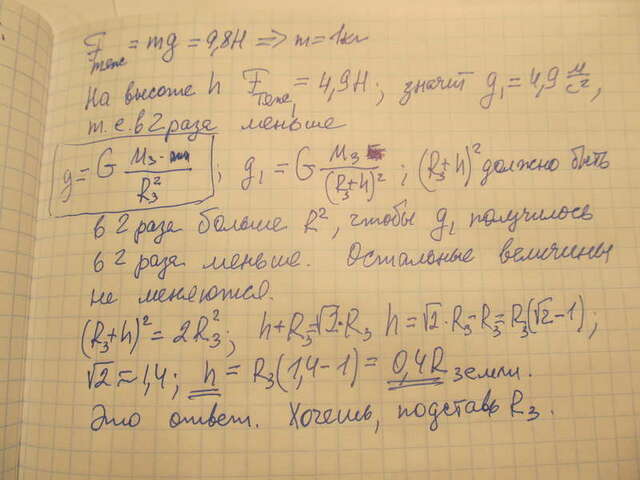 Fтяж = mg = 9,8Н => m = 1кг
На высоте h Fтяж₁ = 4,9Н; значит g₁ = 4,9 м/с²,
т.е. в 2 раза меньше
g = G Mз/Rз²; g₁ = G Mз/(Rз+h)²; (Rз+h)² должно быть
в 2 раза больше R², чтобы g₁ получилось
в 2 раза меньше. Остальные величины
не меняются.
(Rз+h)² = 2Rз²; h+Rз=√2·Rз h = √2·Rз-Rз=Rз(√2-1);
√2≈1,4; h = Rз(1,4-1) = 0,4R земли.
Это ответ. Хочешь, подставь Rз.